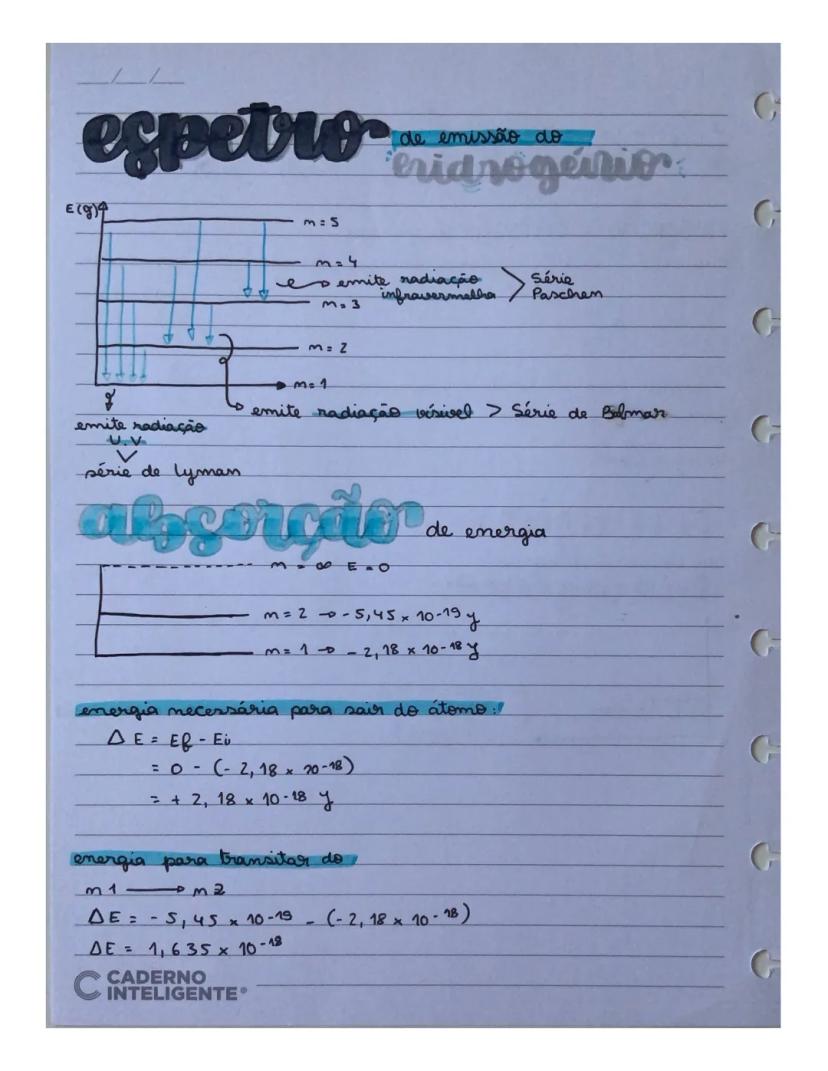 espetro de emissão do
hidrogénio
E (J)
n = 5
n = 4
emite radiação
infravermelha > Série
Paschen
n = 3
n = 2
n = 1
emite radiação vísivel > Série de Balmar
emite radiação
U.V.
série de Lyman
absorção de energia
n = ∞ E = 0
n = 2 → - 5,45 × 10-19 J
n = 1 → - 2,18 × 10-18 J
energia necessária para sair do átomo:
Δ E = Ef - Ei
= 0 - (- 2,18 × 10-18)
= + 2,18 × 10-18 J
energia para transitar do
n 1 → n 2
ΔE = - 5,45 × 10-19 - (- 2,18 × 10-18)
ΔE = 1,635 × 10-18
CADERNO
INTELIGENTE®